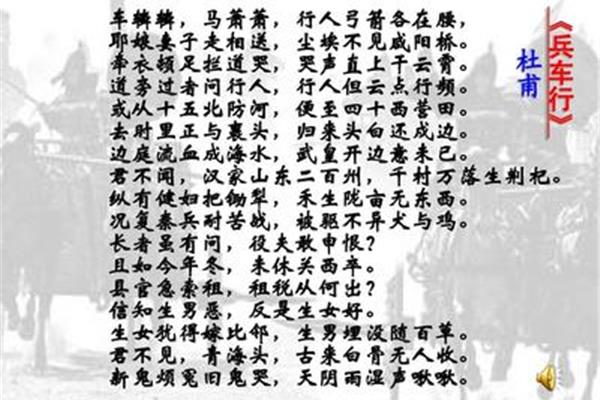 《兵车行》
杜甫
车辚辚，马萧萧，行人弓箭各在腰，
耶娘妻子走相送，尘埃不见咸阳桥。
牵衣顿足拦道哭，哭声直上干云霄。
道旁过者问行人，行人但云点行频。
或从十五北防河，便至四十西营田。
去时里正与裹头，归来头白还戍边。
边庭流血成海水，武皇开边意未已。
君不闻，汉家山东二百州，千村万落生荆杞。
纵有健妇把锄犁，禾生陇亩无东西。
况复秦兵耐苦战，被驱不异犬与鸡。
长者虽有问，役夫敢申恨？
且如今年冬，未休关西卒。
县官急索租，租税从何出？
信知生男恶，反是生女好。
生女犹得嫁比邻，生男埋没随百草。
君不见，青海头，古来白骨无人收。
新鬼烦冤旧鬼哭，天阴雨湿声啾啾。